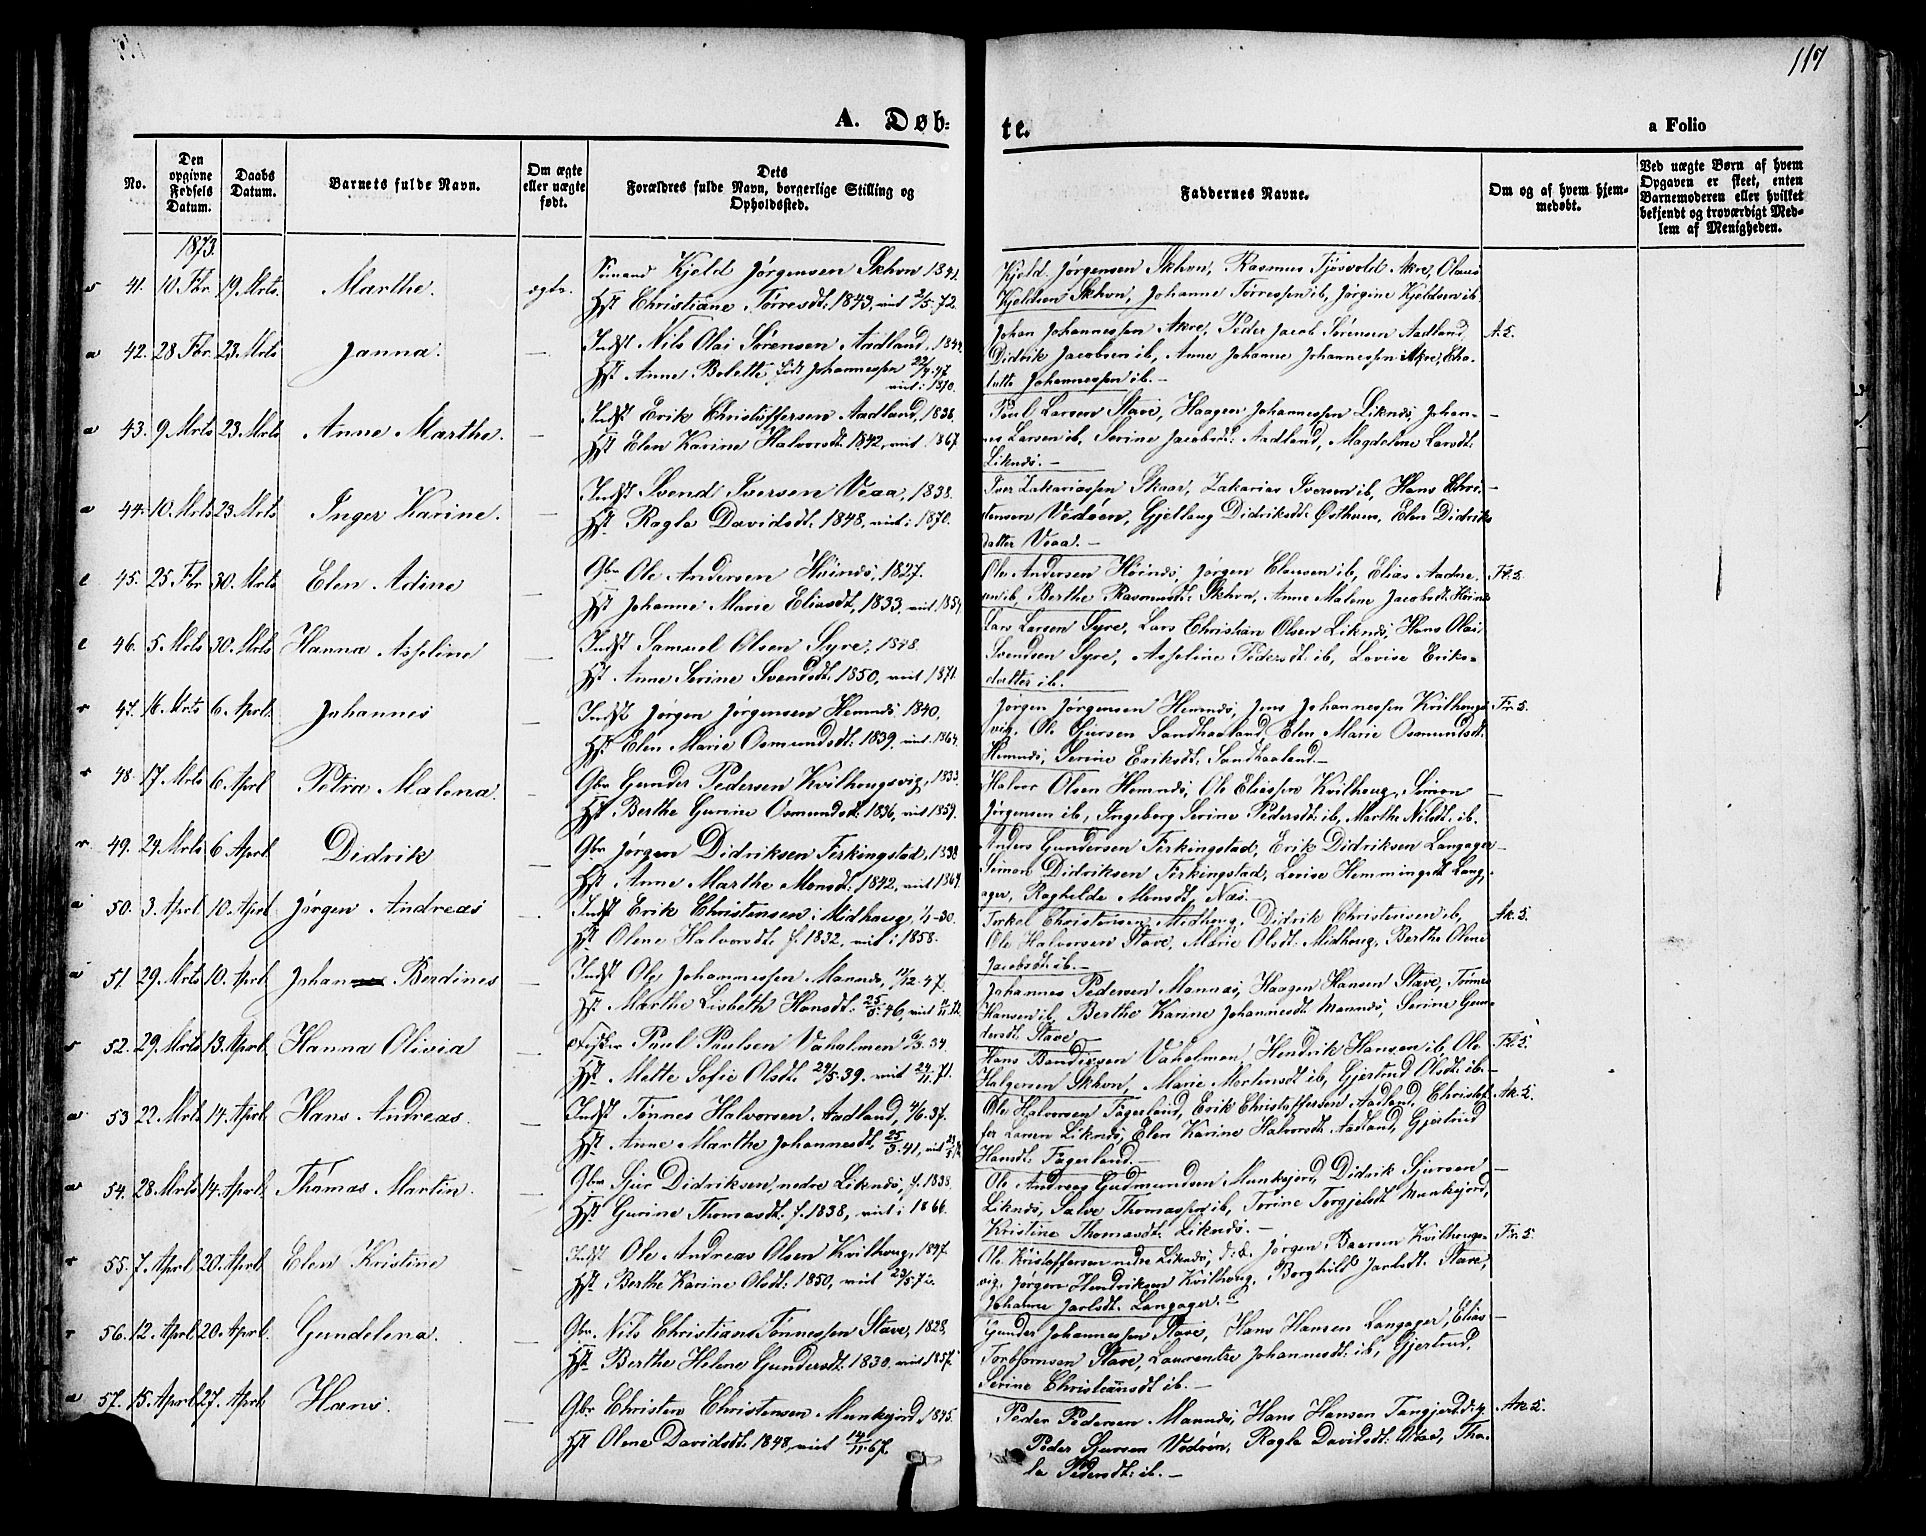 117
A. Døb-
te.
a Folio
No.
Den opgivne Fødsels Datum.
Daabs Datum.
Barnets fulde Navn.
Om ægte eller uægte født.
Dets Forældres fulde Navn, borgerlige Stilling og Opholdssted.
Faddernes Navne.
Om og af hvem hjemmedøbt.
Ved uægte Børn af hvem Opgaven er skeet, enten Barnemoderen eller hvilket bekjendt og troværdigt Medlem af Menigheden.
1873.
s 41. 10. Fbr 19. Mrts. Marthe. ægte. Kjeld Jørgensen Skhvn 1841.
Hst Christiane Tørresdt: 1843, viet 2/5.72.
Kjeld Jørgensen Skhvn, Rasmus Tjösvold Akre, Olaus
Kjeldsen Skhvn, Johanne Tørressen ib, Jørgine Kjeldsen ib.
a 42. 28 Fbr. 23. Mrts Janna. — Indst Nils Olai Sørensen Aadland, 1844.
Hst Anne Bolette født Johannessen
viet: 1870.
Johan Johannessen Akre, Peder Jacob Sørensen Aadland, A. 5.
Didrik Jacobsen ib, Anne Johanne Johannessen Akre,
Johannessen ib. —
a 43. 9. Mrts 23. Mrts Anne Marthe. — Indst Erik Christoffersen Aadland, 1838.
Hst Elen Karine Halvorsdt: 1842, viet: 1867.
Poul Larsen Stave, Haagen Johannessen Liknæs, Johan- —
nes Larsen ib, Serine Jacobsdt: Aadland, Magdelene Larsdt:
Liknæs. —
a 44. 10. Mrts 23. Mrts Inger Karine. — Indst Svend Iversen Veaa, 1838.
Hst. Ragla Davidsdt: 1848, viet: 1870.
Iver Zakariassen Skaar, Zakarias Iversen ib, Hans Chri- —
stensen Vedøen, Gjellaug Didriksdt: Østhuus, Elen Didriks
datter Veaa. —
e 45. 25. Fbr 30. Mrts Elen Adine — Gbr Ole Andersen Høinæs, 1827.
Hst Johanne Marie Eliasdt, 1833. viet: 1854
Ole Andersen Høinæs, Jørgen Clausen ib, Elias Aadne-
sen ib, Berthe Rasmusdt: Skhvn, Anne Malene Jacobsdt: Høinæs
e 46. 5. Mrts 30. Mrts Hanna Asseline — Indst Samuel Olsen Syre, 1848.
Hst Anne Serine Svendsdt: 1850, viet 1871.
Lars Larsen Syre, Lars Christian Olsen Liknæs, Hans Olai
Svendsen Syre, Asseline Pedersdt: ib, Lovise Eriks-
datter ib.
r 47. 16. Mrts 6. April. Johannes — Indst Jørgen Jørgensen Hemnæs, 1840,
Hst. Elen Marie Osmundsdt: 1839, viet: 1864.
Jørgen Jørgensen Hemnæs, Jens Johannessen Kvilhougs- Fr. 5.
vig, Ole Gjursen Sandhaaland, Elen Marie Osmundsdt:
Hemnæs, Serine Eriksdt: Sandhaaland. —
r 48. 17. Mrts 6. Aprl Petra Malena. — Gbr Gunder Pedersen Kvilhougsvig, 1833.
Hst Berthe Gurine Osmundsdt: 1836, viet 1859.
Halvor Olsen Hemnæs, Ole Eliassen Kvilhoug, Simon —
Jørgensen ib, Ingeborg Serine Pedersdt: ib, Marthe Nilsdt: ib.
r 49. 24. Mrts 6. Aprl Didrik — Gbr Jørgen Didriksen Ferkingstad, 1838
Hst Anne Marthe Monsdt: 1842, viet 1864.
Anders Gundersen Ferkingstad, Erik Didriksen Langager —
Simon Didriksen Ferkingstad, Lovise Hemmingsdt Lang-
ager, Raghilde Monsdt: Næs. —
a 50. 3. Aprl 10. Aprl Jørgen Andreas — Indst Erik Christensen Midhaug,
Hst Olene Halvorsdt. f. 1832, viet: 1858.
Torkel Christensen Midhoug, Didrik Christensen ib, Ak. 5.
Ole Halvorsen Stave, Marie Olsdt: Midhoug, Berthe Olene
Jacobsdt: ib. —
a 51. 29. Mrts 10. Aprl Johan Berdines — Indst Ole Johannessen Mannæs, 13/12 47.
Hst: Marthe Lisbeth Hansdt: 25/6.46,
Johannes Pedersen Mannæs, Haagen Hansen Stave, Tønnes —
Hansen ib, Berthe Karine Johannesdt Mannæs, Serine Gun-
dersdt: Stave
s 52. 29. Mrts 13. Aprl. Hanna Olivia — Fisker Paul Paulsen Vaholmen 6/3.34.
Hst. Mette Sofie Olsdt. 24/5.39. viet 24/11.71.
Hans Bendixsen Vaholmen, Hendrik Hansen ib, Ole Fl. 5.
Halgersen Skhvn, Marie Mortensdt ib, Gjertrud Olsdt: ib. —
a 53 22. Mrts 14. Aprl. Hans Andreas. — Indst Tønnes Halvorsen Aadland, 4/6.37.
Hst. Anne Marthe Johannesdt, 25/3.41,
Ole Halvorsen Fagerland, Erik Christoffersen Aadland, Christof- Ak. 5.
fer Larsen Liknæs, Elen Karine Halvorsdt. Aadland, Gjertrud
Hansdt: Fagerland. —
a 54. 28. Mrts 14. Aprl. Thomas Martin. — Gbr Sjur Didriksen, nedre Liknæs, f. 1838,
Hst. Gurine Thomasdt: f. 1838, viet: 1866.
Ole Andreas Gudmundsen Munkejord, Didrik Sjursen —
Liknæs, Salve Thomassen ib, Torine Torgjelsdt Munkejord,
Kristine Thomasdt: Liknæs. —
r 55. 7. Aprl 20. Aprl Elen Kristine — Indst Ole Andreas Olsen Kvilhoug, 1847.
Hst. Berthe Karine Olsdt: 1850, viet 23/5.72.
Ole Kristoffersen nedre Liknæs, Jørgen Kvilhougs- Fr. 5.
vig, Jørgen Hendriksen Kvilhoug, Borghild Jarlsdt: Stave,
Johanne Jarlsdt: Langager. —
r 56. 12. Aprl 20. Aprl. Gundelena. — Gbr. Nils Christian Tønnessen Stave, 1828,
Hst. Berthe Helene Gundersdt: 1830. viet 1857.
Gunder Johannessen Stave, Hans Hansen Langager, Elias —
Torbjørnsen Stave, Laurentze Johannesdt: ib, Gjertrud
Serine Christiansdt ib. —
a 57. 15. Aprl 27. Aprl. Hans. — Gbr Christen Christensen Munkejord, 1845.
Hst Olene Davidsdt: 1848, viet 14/11.67.
Peder Pedersen Mannæs, Hans Hansen Tangjerd. d. y. Ak. 5.
Peder Sjursen Vedøen, Ragla Davidsdt: Veaa, Tho-
la Pedersdt: ib. —